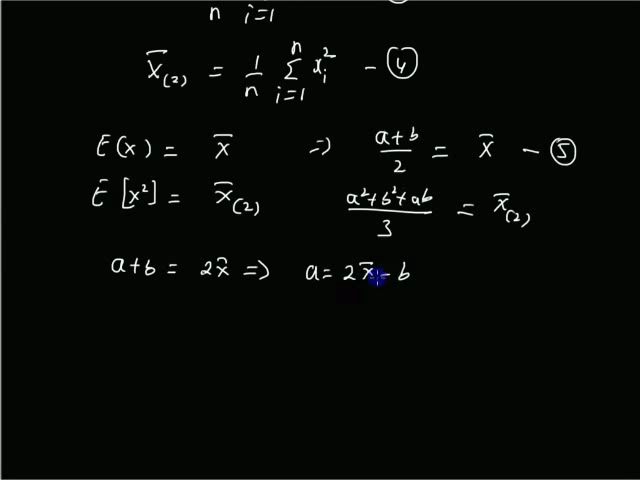 n i=1
x̄₍₂₎ = 1/n Σⁿᵢ₌₁ xᵢ² - ④
E(x) = x̄ => a+b/2 = x̄ - ⑤
E[x²] = x̄₍₂₎ a²+b²+ab/3 = x̄₍₂₎
a+b = 2x̄ => a = 2x̄ - b